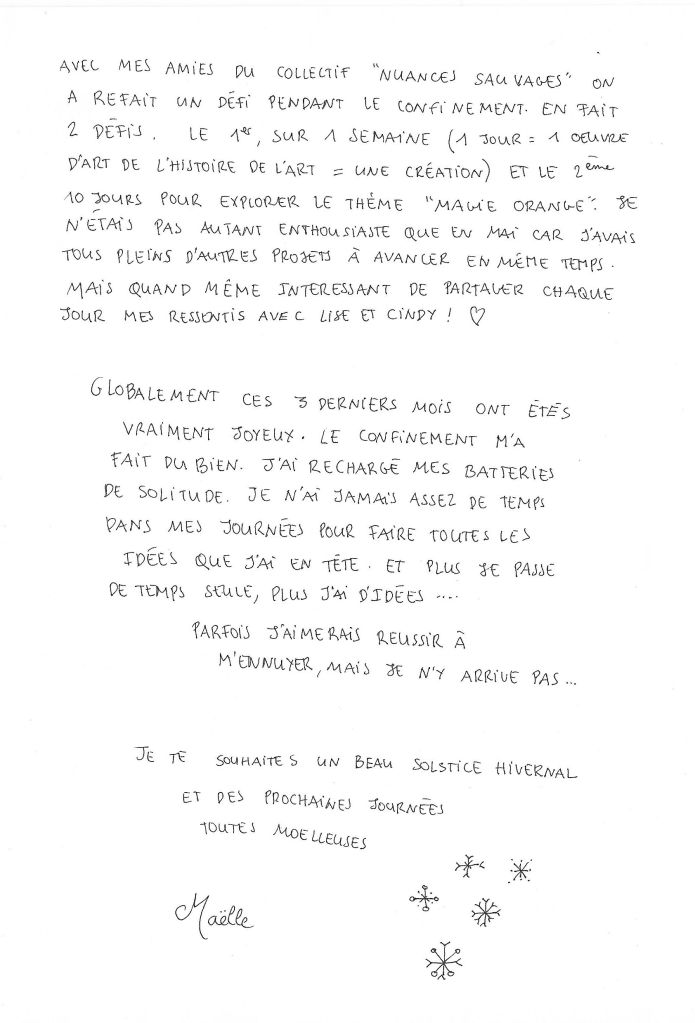 AVEC MES AMIES DU COLLECTIF "NUANCES SAUVAGES" ON
A REFAIT UN DÉFI PENDANT LE CONFINEMENT. EN FAIT
2 DÉFIS. LE 1er, SUR 1 SEMAINE (1 JOUR = 1 OEUVRE
D'ART DE L'HISTOIRE DE L'ART = UNE CRÉATION) ET LE 2ème
10 JOURS POUR EXPLORER LE THÈME "MAGIE ORANGE". JE
N'ÉTAIS PAS AUTANT ENTHOUSIASTE QUE EN MAI CAR J'AVAIS
TOUS PLEINS D'AUTRES PROJETS À AVANCER EN MÊME TEMPS.
MAIS QUAND MÊME INTERESSANT DE PARTAGER CHAQUE
JOUR MES RESSENTIS AVEC LISE ET CINDY ! ♡
GLOBALEMENT CES 3 DERNIERS MOIS ONT ÉTÉS
VRAIMENT JOYEUX. LE CONFINEMENT M'A
FAIT DU BIEN. J'AI RECHARGÉ MES BATTERIES
DE SOLITUDE. JE N'AI JAMAIS ASSEZ DE TEMPS
DANS MES JOURNÉES POUR FAIRE TOUTES LES
IDÉES QUE J'AI EN TÊTE. ET PLUS JE PASSE
DE TEMPS SEULE, PLUS J'AI D'IDÉES ....
PARFOIS J'AIMERAIS REUSSIR À
M'ENNUYER, MAIS JE N'Y ARRIVE PAS ...
JE TE SOUHAITES UN BEAU SOLSTICE HIVERNAL
ET DES PROCHAINES JOURNÉES
TOUTES MOELLEUSES
Maëlle